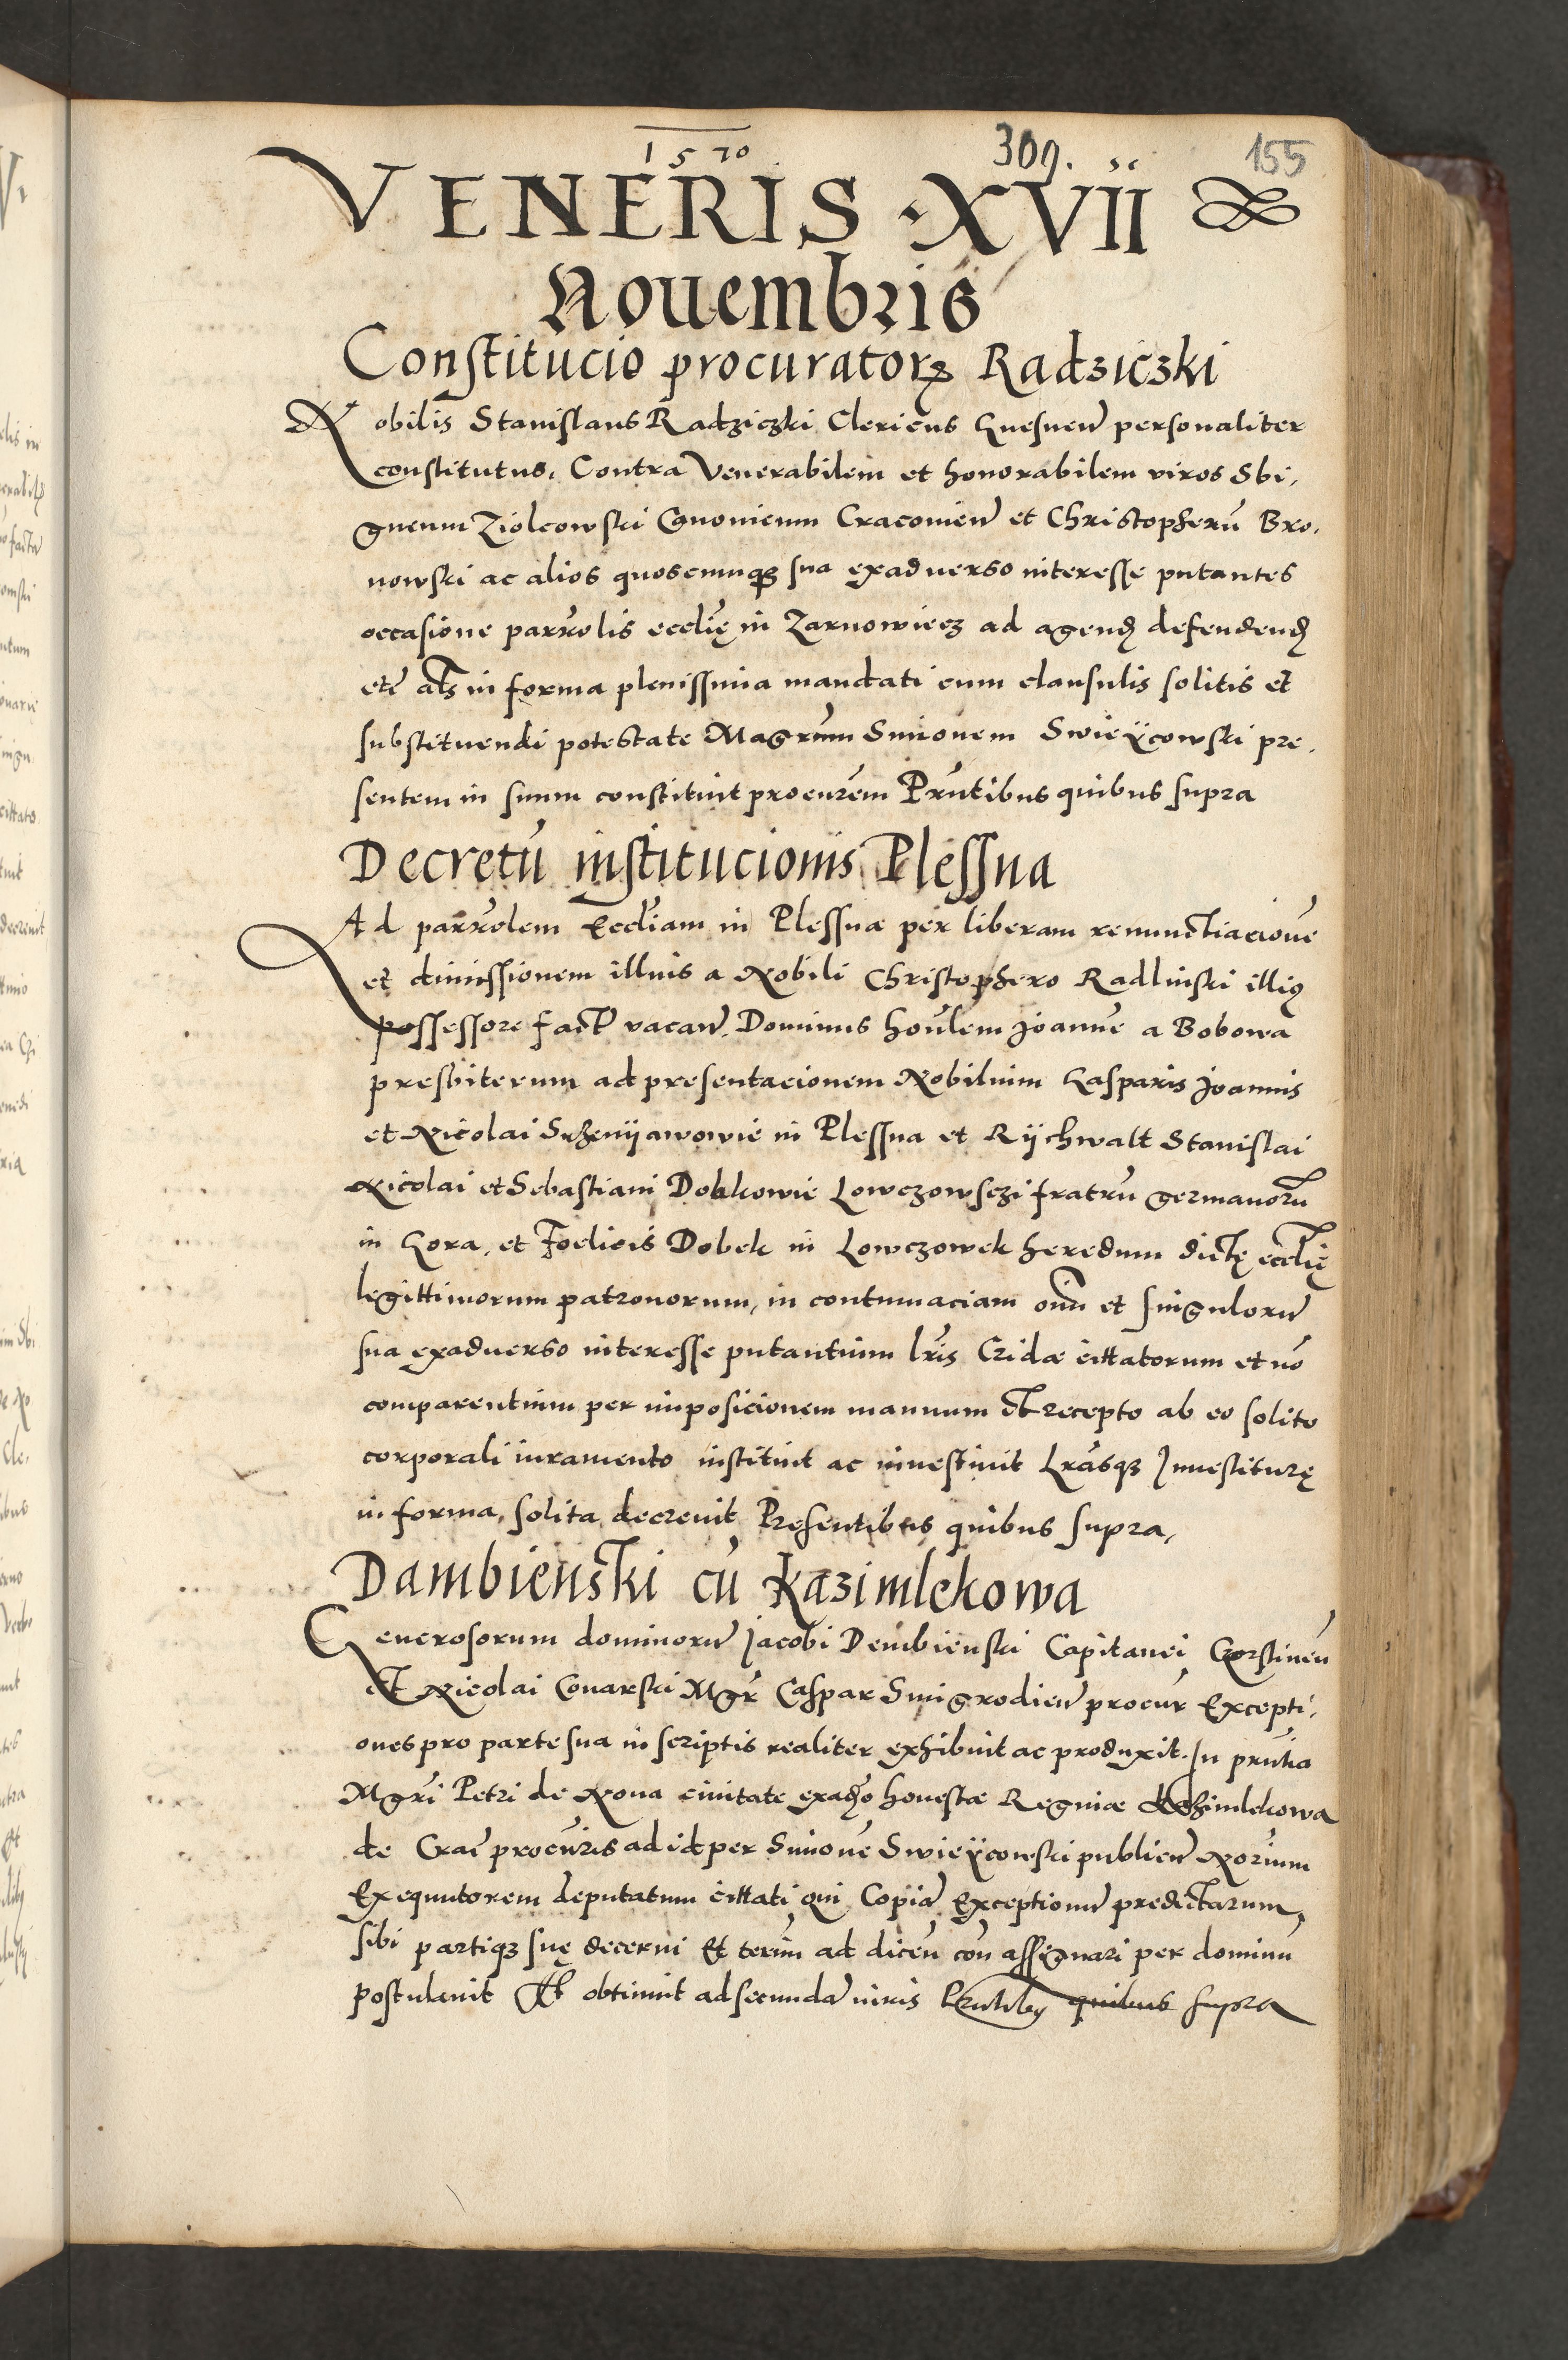 1570 309. 155
VENERIS · XVII
Nouembris
Constitucio procuratorꝝ Radziczki
Nobilis Stanislaus Radziczki Clericus Gnesneñ personaliter
constitutus, Contra Venerabilem et honorabilem viros Sbi,
gneum Ziolcowski Canonicum Cracovieñ et Christopherũ Bro,
nowski ac alios quoscumqꝫ sua exaduerso interesse putantes
occasione parrõlis ecclie̜ in Zarnowiecz ad agenđ defendenđ
etč als̃ in forma plenissima mandati cum clausulis solitis et
substituendi potestate Magrũm Simonem Swieÿcowski pre,
sentem in suum constituit procurẽm Prñtibus quibus supra
Decretũ institucionis Plessna
Ad parrõlem Eccliãm in Plessna per liberam renunctiacionẽ
et dimissionem illius a Nobili Christophero Radlinski illiꝰ
possessore fact̃ vacañ, Dominus hoñlem Joannẽ a Bobowa
presbiterum ad presentacionem Nobilium Gasparis Joannis
et Nicolai Srzenijawowie in Plessna et Rijchwalt Stanislai
Nicolai et Sebastiani Dobkowie Lowczowsczi fratrũ germanorũ
in Gora, et Foelicis Dobek in Lowczowek heredum dicte̜ ecclie̜
legittimorum patronorum, in contumaciam oiñ et singulorũ
sua exaduerso interesse putantium lrĩs Cridæ cittatorum et nõ
comparentium per imposicionem manuum et recepto ab eo solito
corporali iuramento instituit ac inuestiuit Lrãsqꝫ Inuestiture̜
in forma, solita decreuit Presentibus quibus supra,
Dambienski cũ Kazimlekowa
Generosorum dominorũ Jacobi Dembienski Capitanei Gorstineñ
et Nicolai Conarski Mgr̃ Caspar Smigrodieñ procur̃ Excepti,
ones pro parte sua in scriptis realiter exhibuit ac produxit. In prñtia
Mgrĩ Petri de Noua ciuitate exađo honestæ Reginæ Kazimlekowa
de Crac̃ procũris ad id per Simonẽ Swieÿcowski publicũ Norium
Exequutorem deputatum cittati qui Copiã Exceptionũ predictarum,
sibi partiqꝫ sue̜ decerni Et termĩ ad diceñ coñ assignari per dominũ
postulauit Et obtinuit ad secundã iuris Prñtibꝰ quibus supra